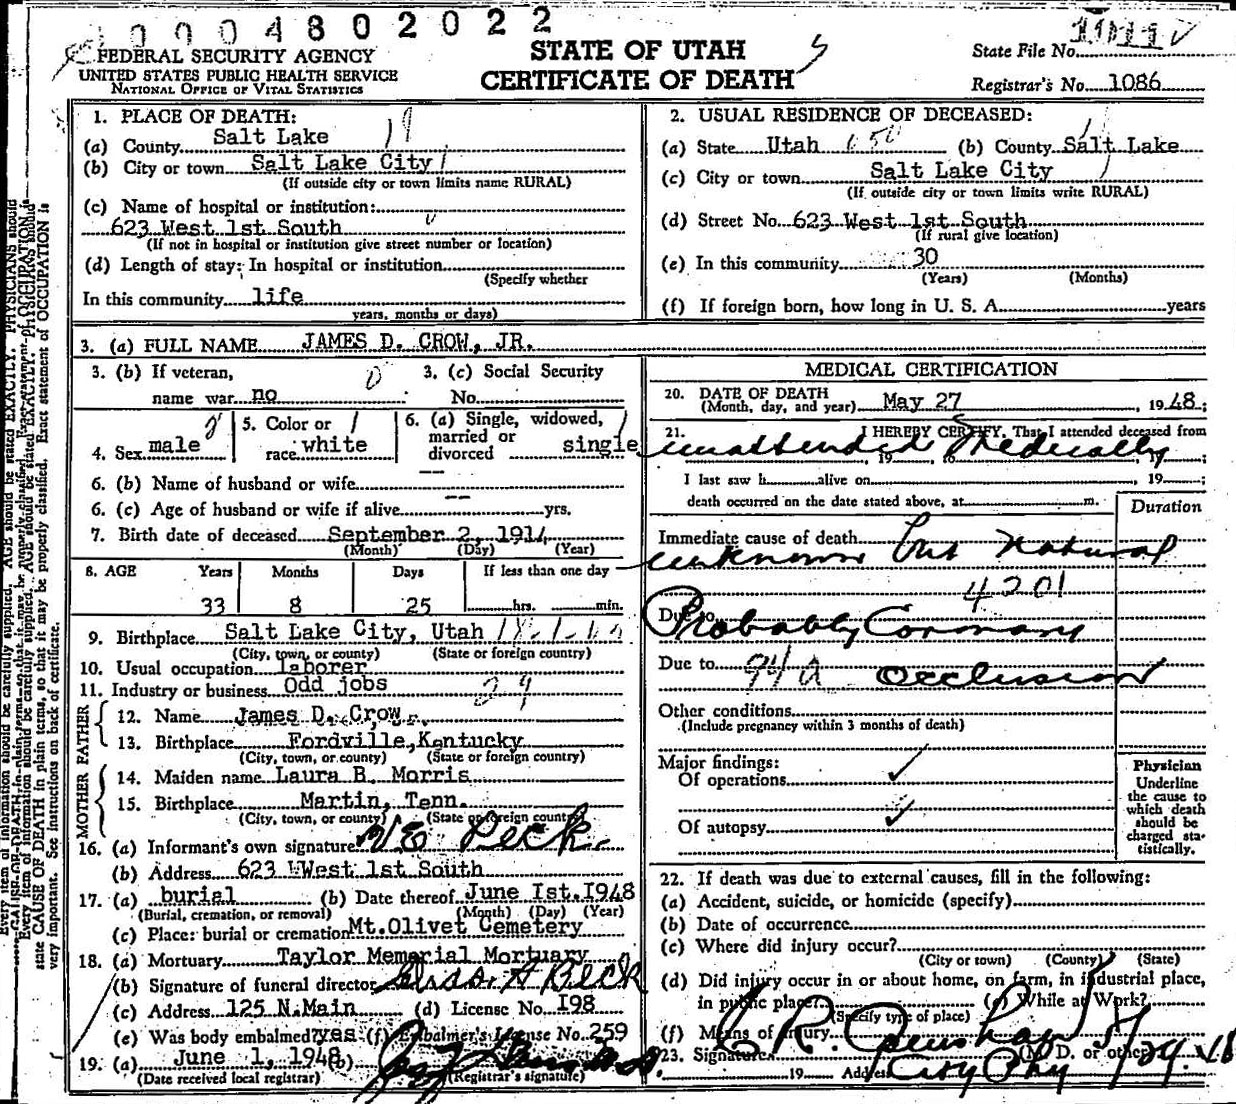 0004802022
FEDERAL SECURITY AGENCY
UNITED STATES PUBLIC HEALTH SERVICE
NATIONAL OFFICE OF VITAL STATISTICS
STATE OF UTAH
CERTIFICATE OF DEATH
State File No.
Registrar's No. 1086
1. PLACE OF DEATH:
(a) County Salt Lake 19
(b) City or town Salt Lake City
(If outside city or town limits name RURAL)
(c) Name of hospital or institution:
623 West 1st South
(If not in hospital or institution give street number or location)
(d) Length of stay: In hospital or institution
(Specify whether
In this community life
years, months or days)
2. USUAL RESIDENCE OF DECEASED:
(a) State Utah (b) County Salt Lake
(c) City or town Salt Lake City
(If outside city or town limits write RURAL)
(d) Street No. 623 West 1st South
(If rural give location)
(e) In this community 30
(Years) (Months)
(f) If foreign born, how long in U. S. A. years
3. (a) FULL NAME JAMES D. CROW, JR.
3. (b) If veteran, 3. (c) Social Security
name war no No.
4. Sex male 5. Color or race white 6. (a) Single, widowed, married or divorced single
6. (b) Name of husband or wife --
6. (c) Age of husband or wife if alive -- yrs.
7. Birth date of deceased September 2, 1914
(Month) (Day) (Year)
8. AGE Years Months Days If less than one day
33 8 25 hrs. min.
9. Birthplace Salt Lake City, Utah
(City, town, or county) (State or foreign country)
10. Usual occupation laborer
11. Industry or business Odd jobs 29
FATHER
12. Name James D. Crow
13. Birthplace Fordville, Kentucky
(City, town, or county) (State or foreign country)
MOTHER
14. Maiden name Laura B. Morris
15. Birthplace Martin, Tenn.
(City, town, or county) (State or foreign country)
16. (a) Informant's own signature Peck
(b) Address 623 West 1st South
17. (a) burial (b) Date thereof June Ist. I948
(Burial, cremation, or removal) (Month) (Day) (Year)
(c) Place: burial or cremation Mt. Olivet Cemetery
18. (a) Mortuary Taylor Memorial Mortuary
(b) Signature of funeral director A Beck
(c) Address 125 N. Main (d) License No. I98
(e) Was body embalmed? yes (f) Embalmer's License No. 259
19. (a) June 1, 1948 (b)
(Date received local registrar) (Registrar's signature)
MEDICAL CERTIFICATION
20. DATE OF DEATH
(Month, day, and year) May 27, 1948;
21. I HEREBY CERTIFY, That I attended deceased from
unattended Medically
19 to , 19 ;
I last saw h alive on , 19 ;
death occurred on the date stated above, at m.
Duration
Immediate cause of death
unknown but natural
4201
Due to Probably Coronary
Due to 94a Occlusion
Other conditions
(Include pregnancy within 3 months of death)
Major findings:
Of operations ✓
Of autopsy ✓
Physician
Underline
the cause to
which death
should be
charged sta-
tistically.
22. If death was due to external causes, fill in the following:
(a) Accident, suicide, or homicide (specify)
(b) Date of occurrence
(c) Where did injury occur?
(City or town) (County) (State)
(d) Did injury occur in or about home, on farm, in industrial place,
in public place? (e) While at Work?
(Specify type of place)
(f) Means of injury
23. Signature (M. D. or other)
19 Address City Phy 5/29.48
Every item of information should be carefully supplied. AGE should be stated EXACTLY. PHYSICIANS should
state CAUSE OF DEATH in plain terms, so that it may be properly classified. Exact statement of OCCUPATION is
very important. See instructions on back of certificate.